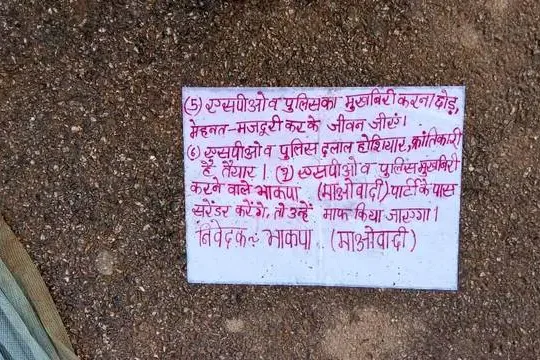 (5) एसपीओ व पुलिस का मुखबिरी करना छोड़,
मेहनत-मजदुरी कर के जीवन जीएं।
(6) एसपीओ व पुलिस दलाल होशियार, क्रांतिकारी
हैं तैयार। (7) एसपीओ व पुलिस मुखबिरी
करने वाले भाकपा (माओवादी) पार्टी के पास
सरेंडर करेंगे, तो उन्हें माफ किया जाएगा।
निवेदक:- भाकपा (माओवादी)